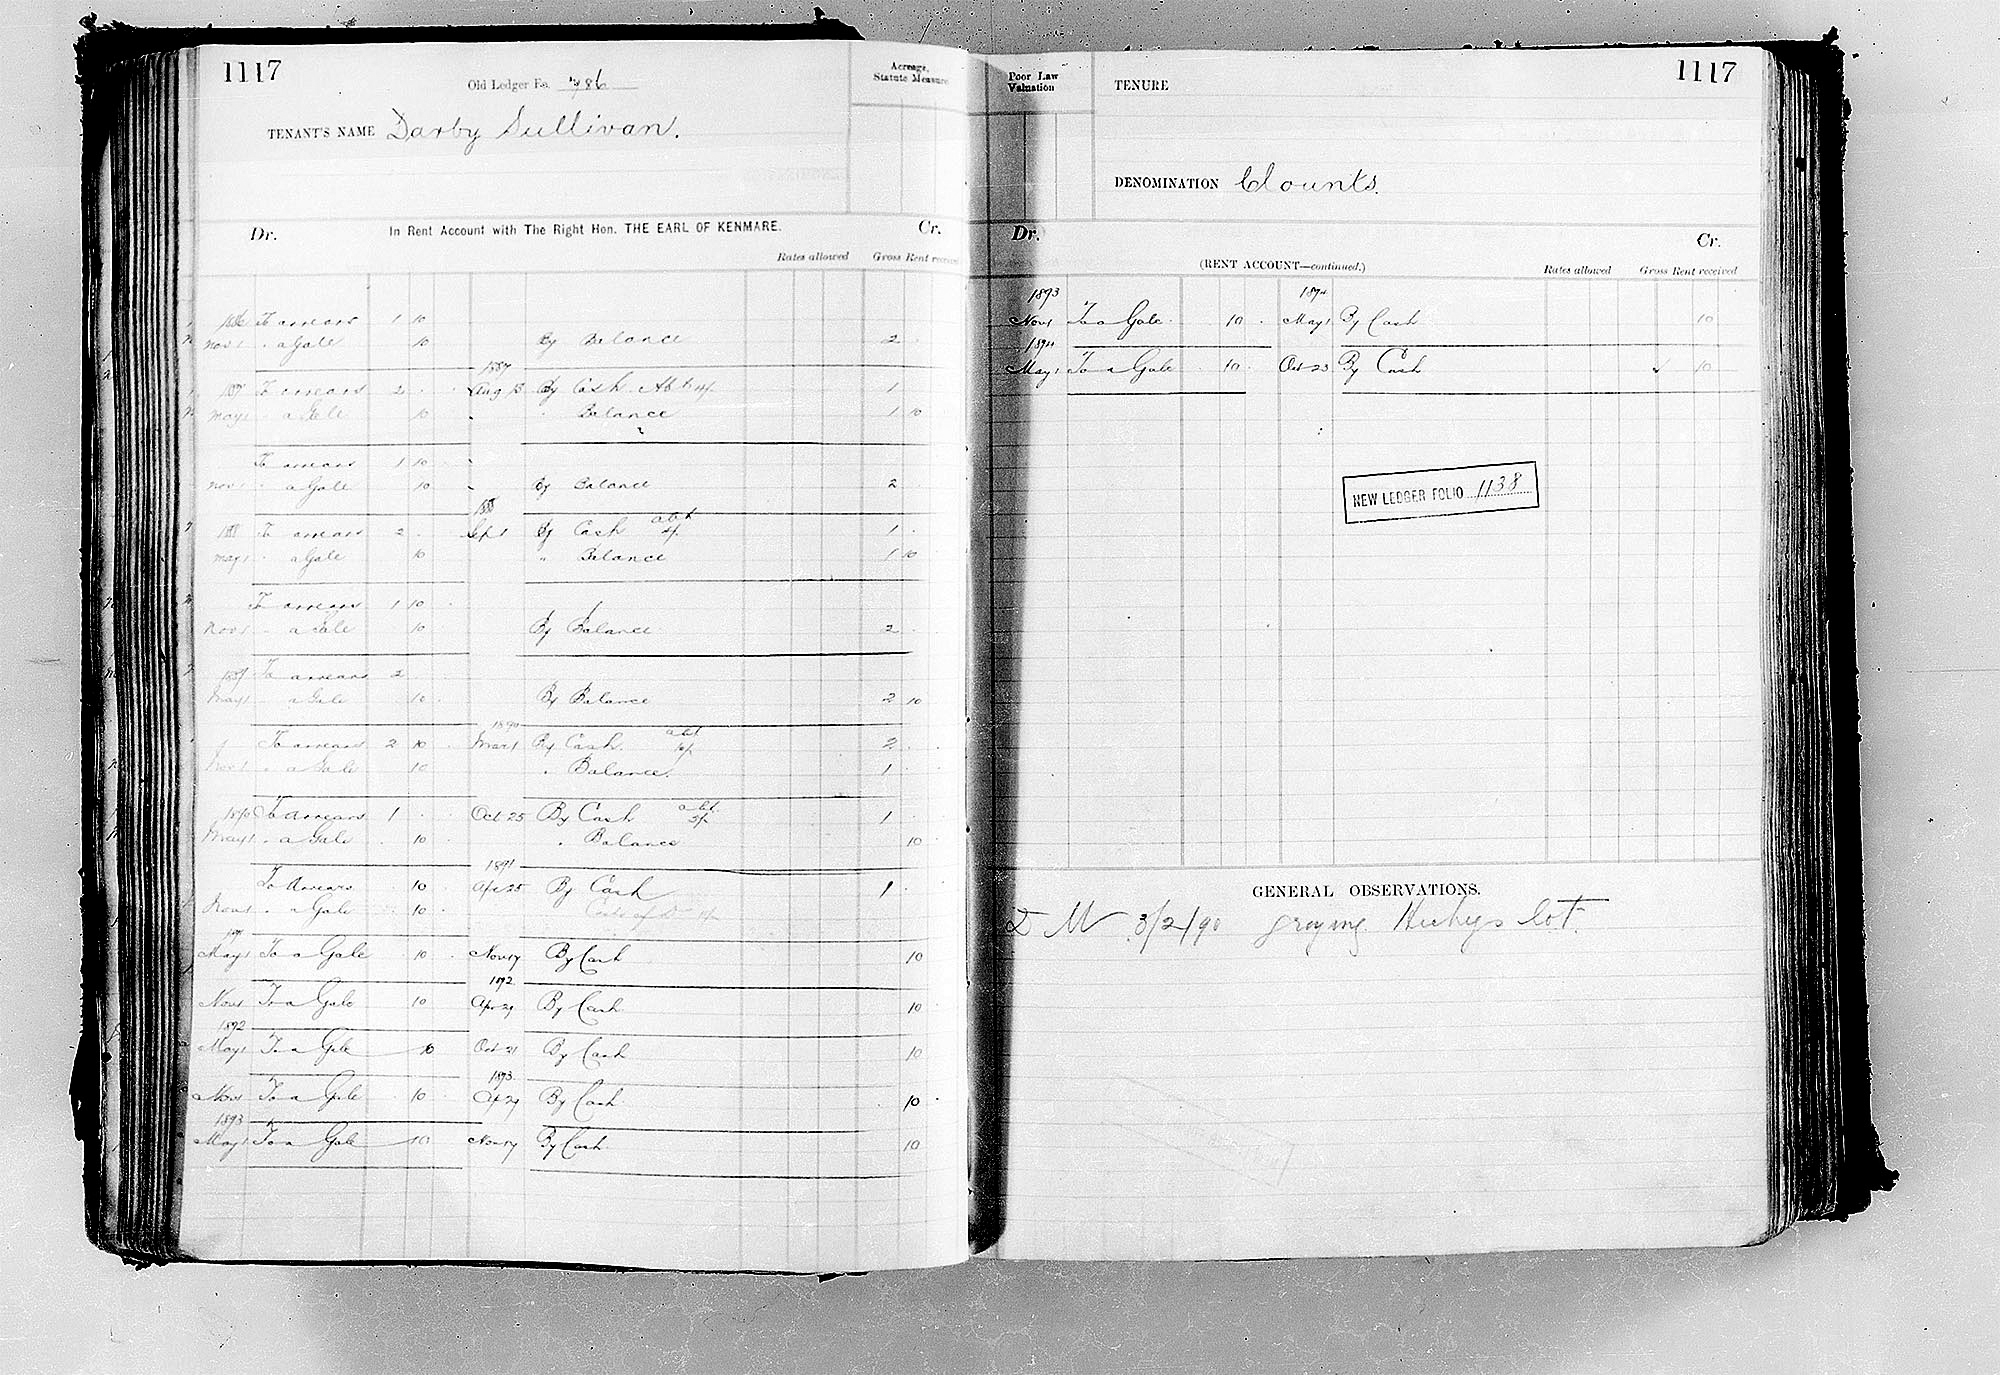 1117
Old Ledger Fo. 786
Acreage, Statute Measure
TENANT'S NAME Darby Sullivan.
Dr. In Rent Account with The Right Hon. THE EARL OF KENMARE. Cr.
Rates allowed Gross Rent received
1886 To arrears 1 10
Nov 1 " a Gale 10 By Balance 2
1887
1887 To arrears 2 Aug 13 By Cash Abt 4/. 1
May 1 a Gale 10 " Balance 1 10
To arrears 1 10
Nov 1 a Gale 10 By Balance 2
1888
1888 To arrears 2 Sep 1 By Cash abt 4/. 1
May 1 a Gale 10 " Balance 1 10
To arrears 1 10
Nov 1 a Gale 10 By Balance 2
1889 To arrears 2
May 1 a Gale 10 By Balance 2 10
1890
To arrears 2 10 Mar 1 By Cash abt 2
Nov 1 a Gale 10 " Balance. 1
1890 To arrears 1 Oct 25 By Cash abt 1
May 1 a Gale 10 " Balance 10
1891
To Arrears 10 Apr 25 By Cash 1
Nov 1 a Gale 10
1891
May 1 To a Gale 10 Nov 17 By Cash 10
1892
Nov 1 To a Gale 10 Apr 29 By Cash 10
1892
May 1 To a Gale 10 Oct 21 By Cash 10
1893
Nov 1 To a Gale 10 Ap 29 By Cash 10
1893
May 1 To a Gale 10 Nov 17 By Cash 10
1117
Poor Law Valuation
TENURE
DENOMINATION Clounts.
Dr. Cr.
(RENT ACCOUNT—continued.)
Rates allowed Gross Rent received
1893 1894
Nov 1 To a Gale 10 May 1 By Cash 10
1894
May 1 To a Gale 10 Oct 23 By Cash 10
NEW LEDGER FOLIO 1138
GENERAL OBSERVATIONS.
D M 3/2/90 grazing Hickeys lot.